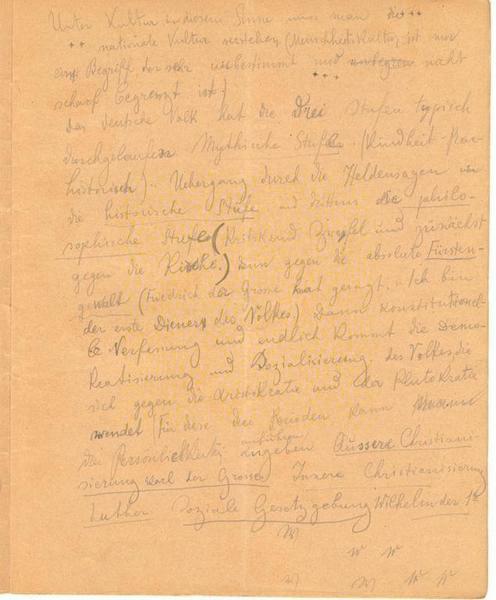 Unter Kultur in diesem Sinne muss man die +++
++ nationale Kultur verstehen (Menschheitskultur ist nur
ein Begriff, der sehr unbestimmt und nicht
scharf begrenzt ist.)
+++
Das deutsche Volk hat die Drei Stufen typisch
durchgelaufen Mythische Stufe (Kindheit-
historisch). Uebergang durch die Heldensagen in
die historische Stufe und drittens die philo-
sophische Stufe (Kritik und Zweifel und zunächst
gegen die Kirche.) Dann gegen die absolute Fürsten-
gewalt (Friedrich der Grosse hat gesagt: Ich bin
der erste Diener des Volkes) Dann Konstitutionel-
le Verfassung und endlich kommt die Demo-
kratisierung und Sozialisierung des Volkes die
sich gegen die Aristokratie und der Plutokratie
wendet (Für diese drei Perioden kann
drei Persönlichkeiten angeben Äussere Christiani-
anführen
sierung Karl der Grosse) Innere Christianisierung
Luther Soziale Gesetzgebung Wilhelm der 1te
W
W W
W W W W